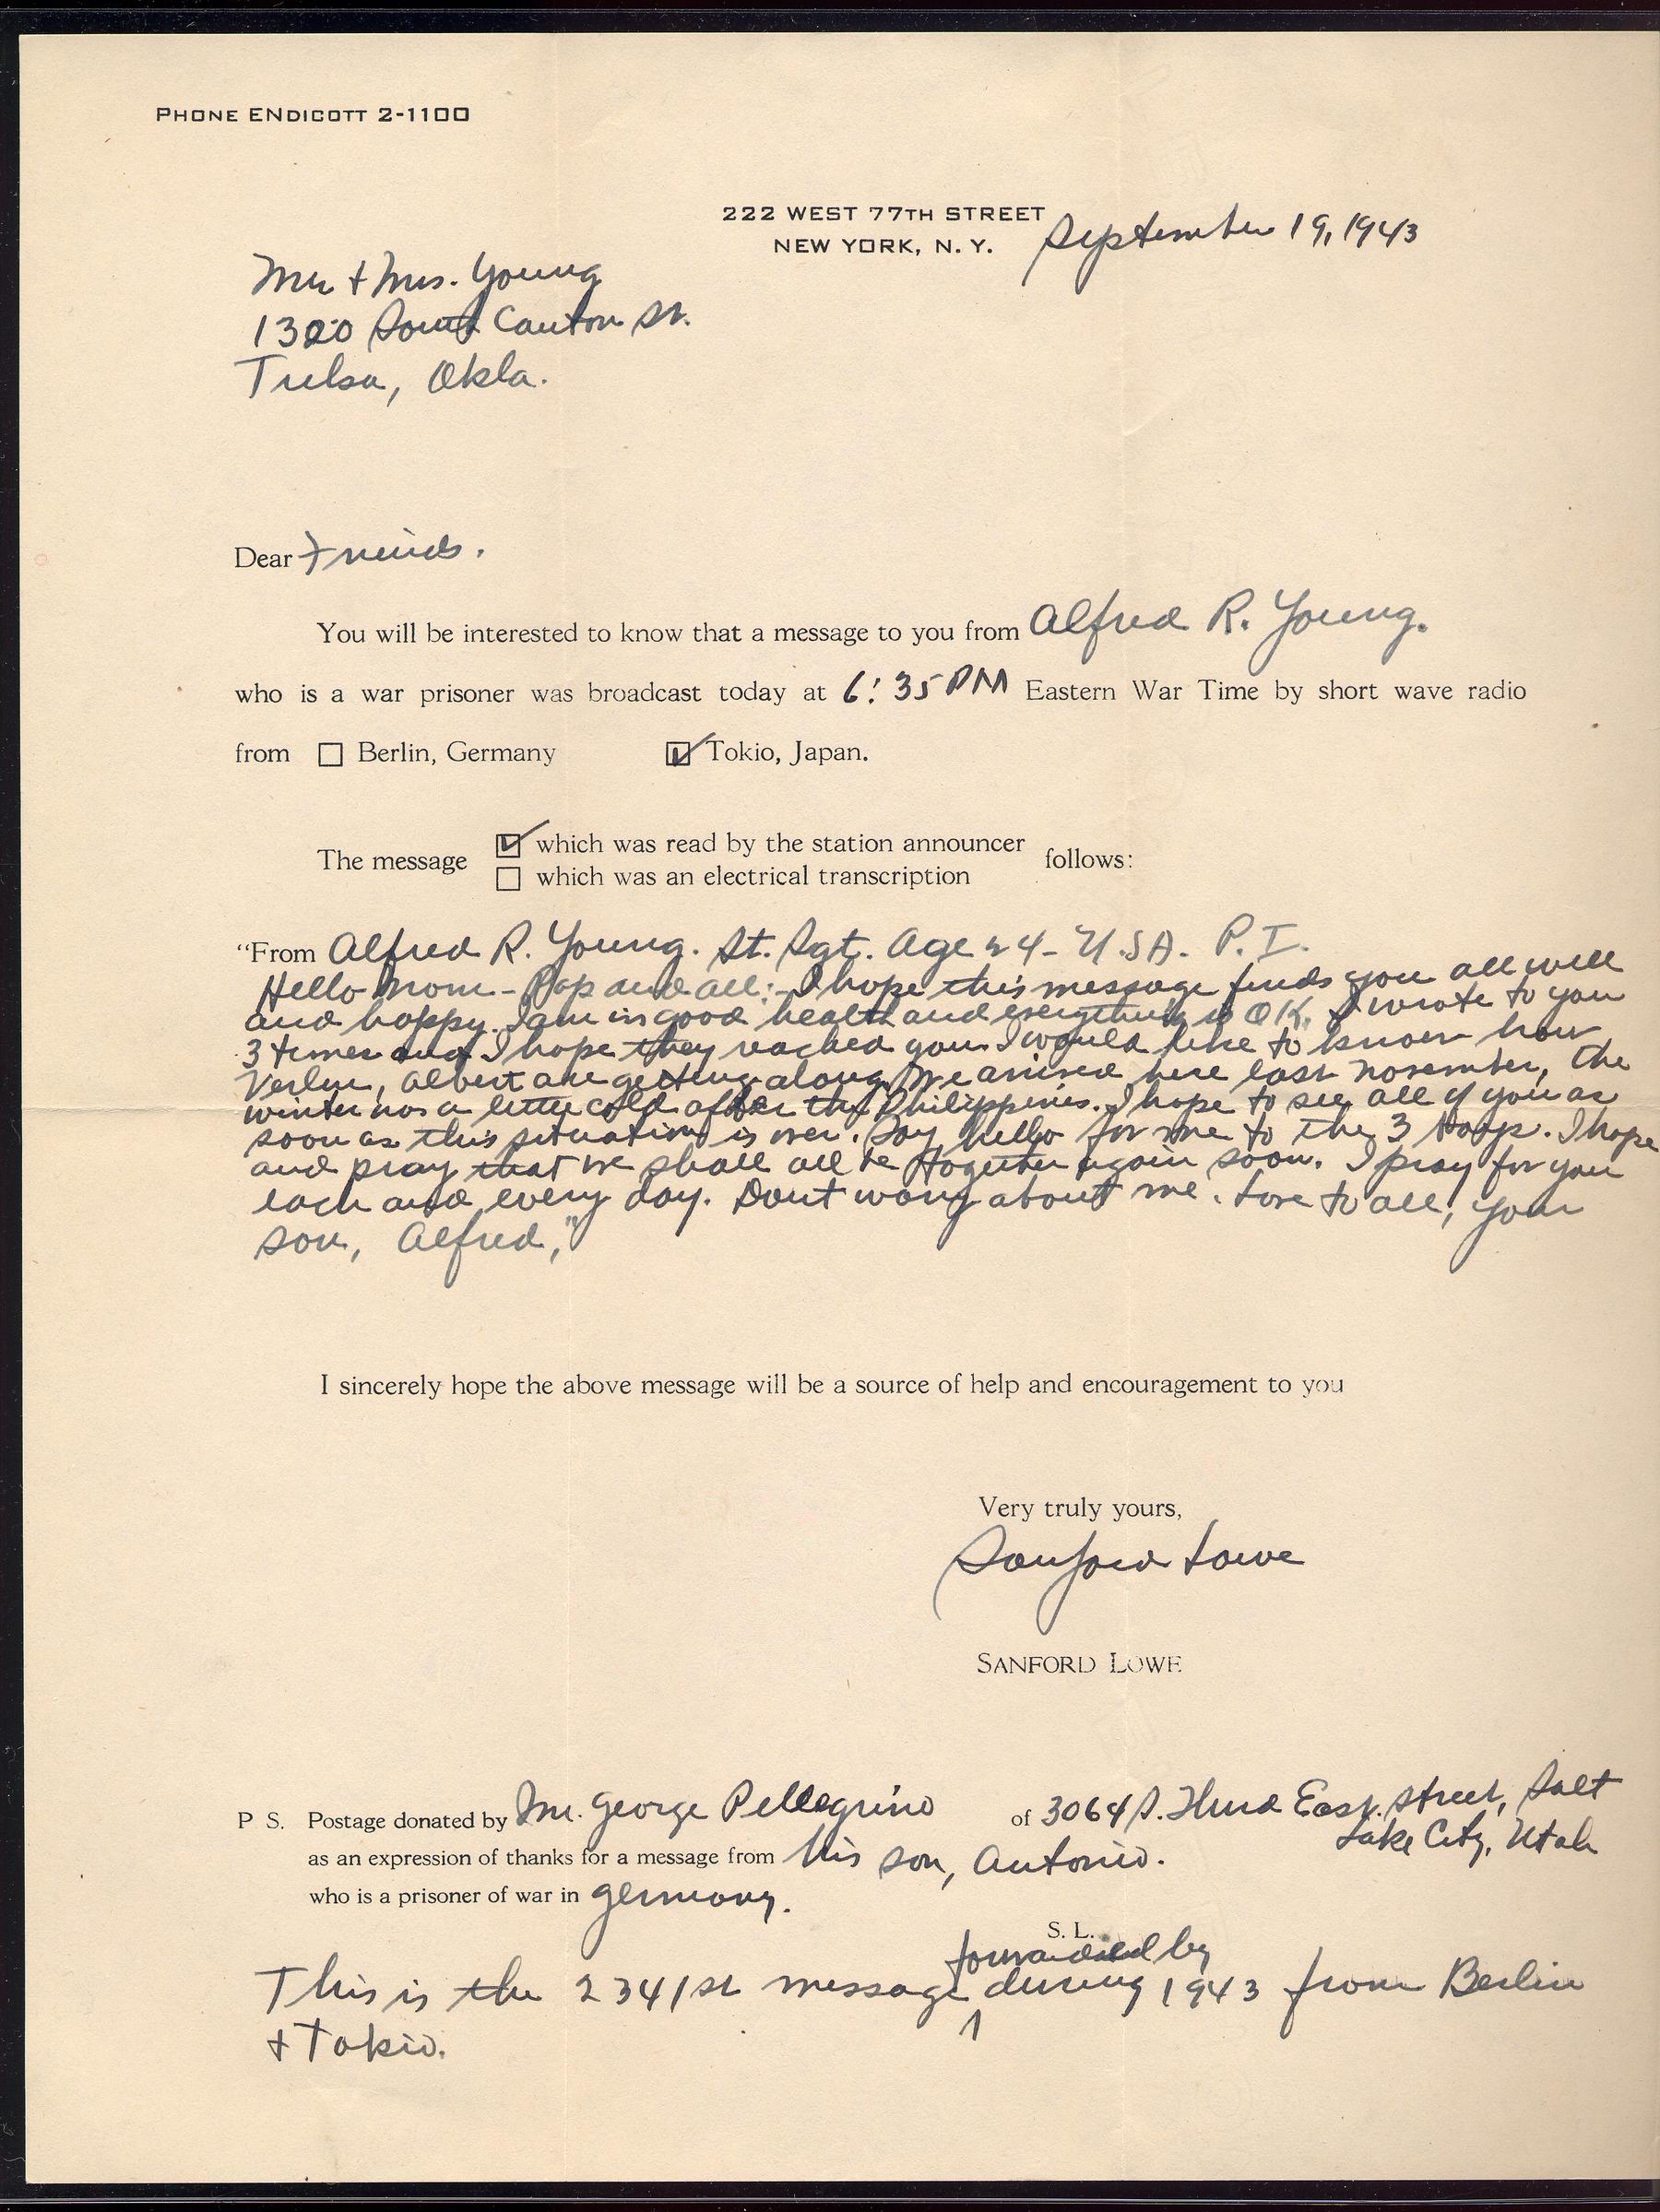 PHONE ENDICOTT 2-1100
222 WEST 77TH STREET
NEW YORK, N. Y. September 19, 1943
Mr + Mrs. Young
1320 South Canton St.
Tulsa, Okla.
Dear Friends.
You will be interested to know that a message to you from Alfred R. Young.
who is a war prisoner was broadcast today at 6:35 PM Eastern War Time by short wave radio
from ☐ Berlin, Germany ☑ Tokio, Japan.
The message ☑ which was read by the station announcer follows:
☐ which was an electrical transcription
"From Alfred R. Young. St. Sgt. Age 24 - U.S.A. P.I.
Hello Mom - Pop and all: - I hope this message finds you all well
and happy. I am in good health and everything is OK. I wrote to you
3 times and I hope they reached you. I would like to know how
Verlyn, Albert are getting along. We arrived here last November, the
winter was a little cold after the Philippines. I hope to see all of you as
soon as this situation is over. Say hello for me to the 3 . I hope
and pray that we shall all be together again soon. I pray for you
each and every day. Dont worry about me. Love to all, your
son, Alfred,"
I sincerely hope the above message will be a source of help and encouragement to you
Very truly yours,
Sanford Lowe
SANFORD LOWE
P S. Postage donated by Mr. George Pellegrino of 3064 S. Third East. Street, Salt
Lake City, Utah
as an expression of thanks for a message from His son, Antonio.
who is a prisoner of war in Germany.
S. L.
forwarded by
This is the 2341st message during 1943 from Berlin
+ Tokio.